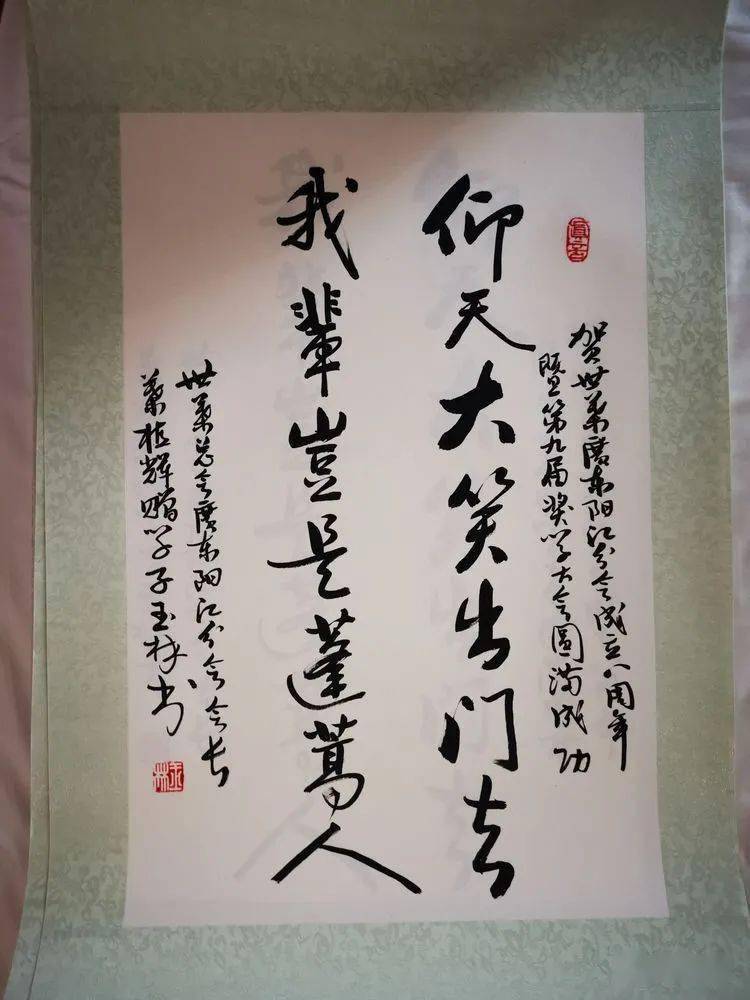 贺世叶广东阳江分会成立八周年
暨第九届奖学大会圆满成功
仰天大笑出门去
我辈岂是蓬蒿人
世叶总会广东阳江分会会长
叶植辉赠学子玉林书
玉林